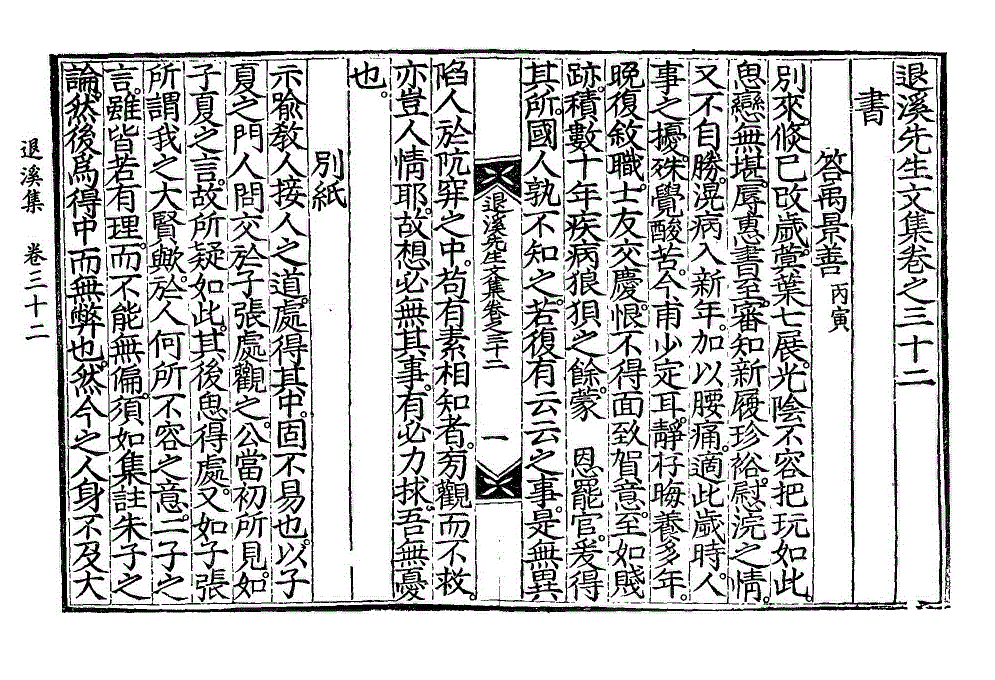 退溪先生文集卷之三十二
書
答禹景善 丙寅
別來。倏已改歲。蓂葉七展。光陰不容把玩如此。
思戀無堪。辱惠書至。審知新履珍裕。慰浣之情。
又不自勝。滉病入新年。加以腰痛。適此歲時。人
事之擾。殊覺酸苦。今甫少定耳。靜存晦養多年。
晚復敘職。士友交慶。恨不得面致賀意。至如賤
跡。積數十年疾病狼狽之餘。蒙 恩罷官。爰得
其所。國人孰不知之。若復有云云之事。是無異
退溪先生文集卷之三十二 一
陷人於阬穽之中。苟有素相知者。旁觀而不救。
亦豈人情耶。故想必無其事。有必力救。吾無憂
也。
別紙
示喩敎人接人之道。處得其中。固不易也。以子
夏之門人問交於子張處觀之。公當初所見。如
子夏之言。故所疑如此。其後思得處。又如子張
所謂我之大賢歟。於人何所不容之意。二子之
言。雖皆若有理。而不能無偏。須如集註朱子之
論。然後爲得中而無弊也。然今之人身不及大
退溪集 卷三十二